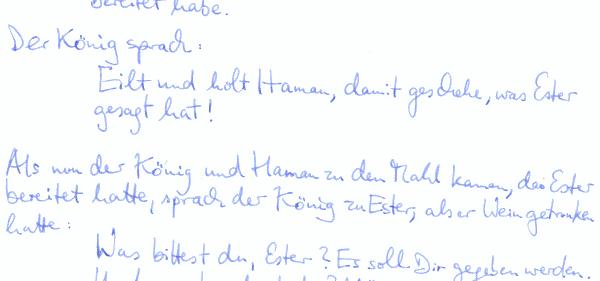 bereitet habe.
Der König sprach:
Eilt und holt Haman, damit geschehe, was Ester
gesagt hat!
Als nun der König und Haman zu dem Mahl kamen, das Ester
bereitet hatte, sprach der König zu Ester, als er Wein getrunken
hatte:
Was bittest du, Ester? Es soll Dir gegeben werden.